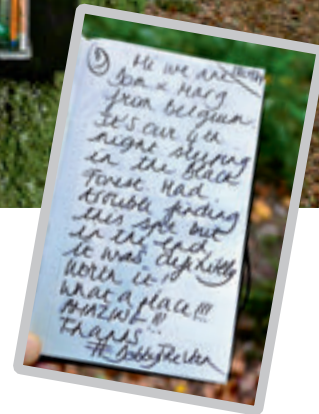 Hi we are
Tom & Marg
from Belgium
It's our 6th
night sleeping
in the Black
Forest. Had
trouble finding
this spot but
in the end
it was definitely
worth it!
What a place!!!
AMAZING!!!
Thanks